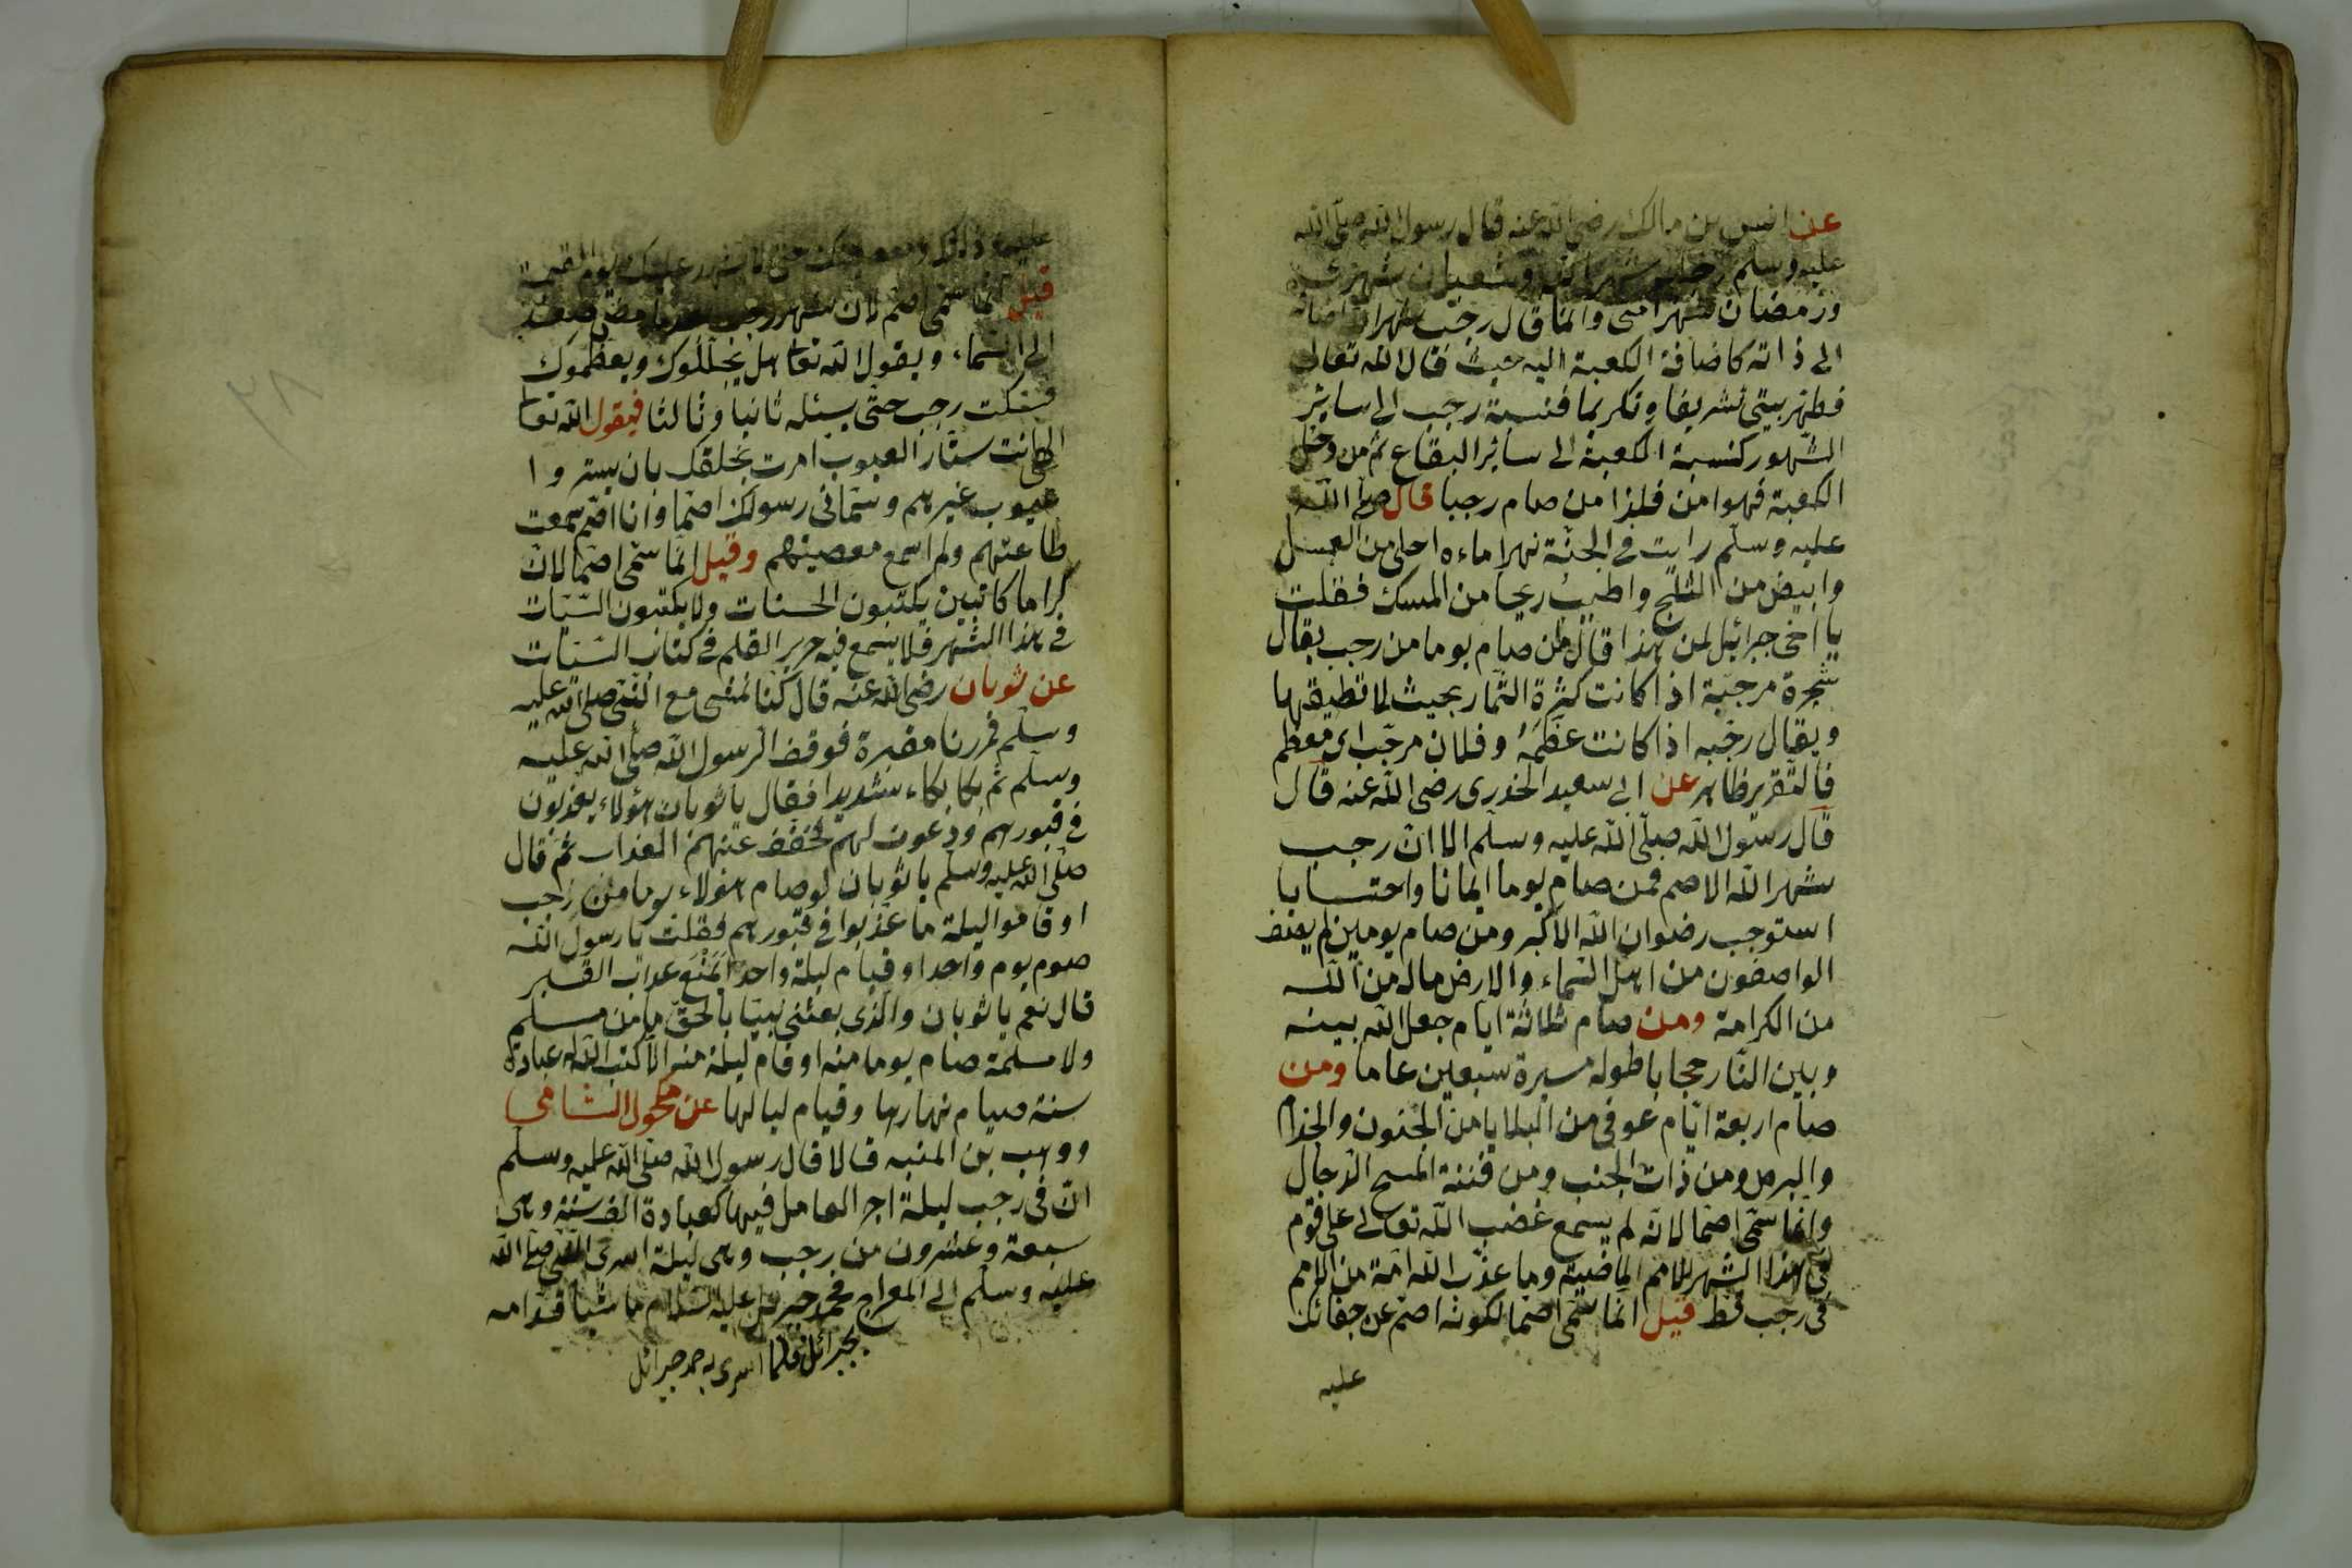 عن انس بن مالك رضى الله عنه قال رسول الله صلى الله
عليه وسلم رجب شهر الله وشعبان شهرى
ورمضان شهر امتى وانما قال رجب شهر الله اضافه
الى ذاته كاضافة الكعبة اليه حيث قال الله تعالى
فطهر بيتى تشريفا وتكريما فنسبة رجب الى سائر
الشهور كنسبة الكعبة الى سائر البقاع ثم من دخل
الكعبة فهو امن فلذا من صام رجبا قال صلى الله
عليه وسلم رايت فى الجنة نهرا ماءه احلى من العسل
وابيض من الثلج واطيب ريحا من المسك فقلت
يا اخى جبرائيل لمن هذا قال لمن صام يوما من رجب يقال
شجرة مرجبة اذا كانت كثرة الثمار بحيث لا تطيقها
ويقال رجبه اذا كانت عظمه وفلان مرجب اى معظم
فالتقرير ظاهر عن ابى سعيد الخدرى رضى الله عنه قال
قال رسول الله صلى الله عليه وسلم الا ان رجب
شهر الله الاصم فمن صام يوما ايمانا واحتسابا
استوجب رضوان الله الاكبر ومن صام يومين لم يصف
الواصفون من اهل السماء والارض ماله من الله
من الكرامة ومن صام ثلاثة ايام جعل الله بينه
وبين النار حجابا طوله مسيرة سبعين عاما ومن
صام اربعة ايام عوفى من البلايا من الجنون والجذام
والبرص ومن ذات الجنب ومن فتنة المسيح الدجال
وانما سمى اصما لانه لم يسمع غضب الله تعالى على قوم
فى هذا الشهر للامم الماضية وما عذب الله امة من الامم
فى رجب قط قيل انما سمى اصما لكونه اصم عن جفائك
عليه
عليه حتى لا يشهد عليك يوم القيمة
قيل انما سمى اصم لان شهر رجب اذا مضى صعد
الى السماء ويقول الله تعالى هل يجللوك ويعظموك
فسكت رجب حتى يسئله ثانيا وثالثا فيقول الله تعالى
الهى انت ستار العيوب امرت بخلقك بان يستروا
عيوب غيرهم وسمانى رسولك اصما وانا اصم سمعت
طاعتهم ولم اسمع معصيتهم وقيل انما سمى اصما لان
كراما كاتبين يكتبون الحسنات ولا يكتبون السيات
فى هذا الشهر فلا يسمع فيه حرير القلم فى كتاب السيات
عن ثوبان رضى الله عنه قال كنا نمشى مع النبى صلى الله عليه
وسلم فمررنا مقبرة فوقف الرسول الله صلى الله عليه
وسلم ثم بكا بكاء شديدا فقال يا ثوبان هؤلاء يعذبون
فى قبورهم ودعوت لهم لخفف عنهم العذاب ثم قال
صلى الله عليه وسلم يا ثوبان لو صام هؤلاء يوما من رجب
او قاموا ليلة ما عذبوا فى قبورهم فقلت يا رسول الله
صوم يوم واحد او قيام ليلة واحد لمنع عذاب القبر
قال نعم يا ثوبان والذى بعثنى نبيا بالحق ما من مسلم
ولا مسلمة صام يوما منه او قام ليلة منه الا كتب الله له عبادة
سنة صيام نهارها وقيام ليالها عن مكحول الشامى
ووهب بن المنبه قالا قال رسول الله صلى الله عليه وسلم
ان فى رجب ليلة اجر العامل فيها كعبادة الف سنة وهى
سبعة وعشرون من رجب وهى ليلة اسرى النبى صلى الله
عليه وسلم الى المعراج فحمد جبرئيل عليه السلام ماشيا قدامه
جبرائيل فلما اسرى به حمد جبرائل